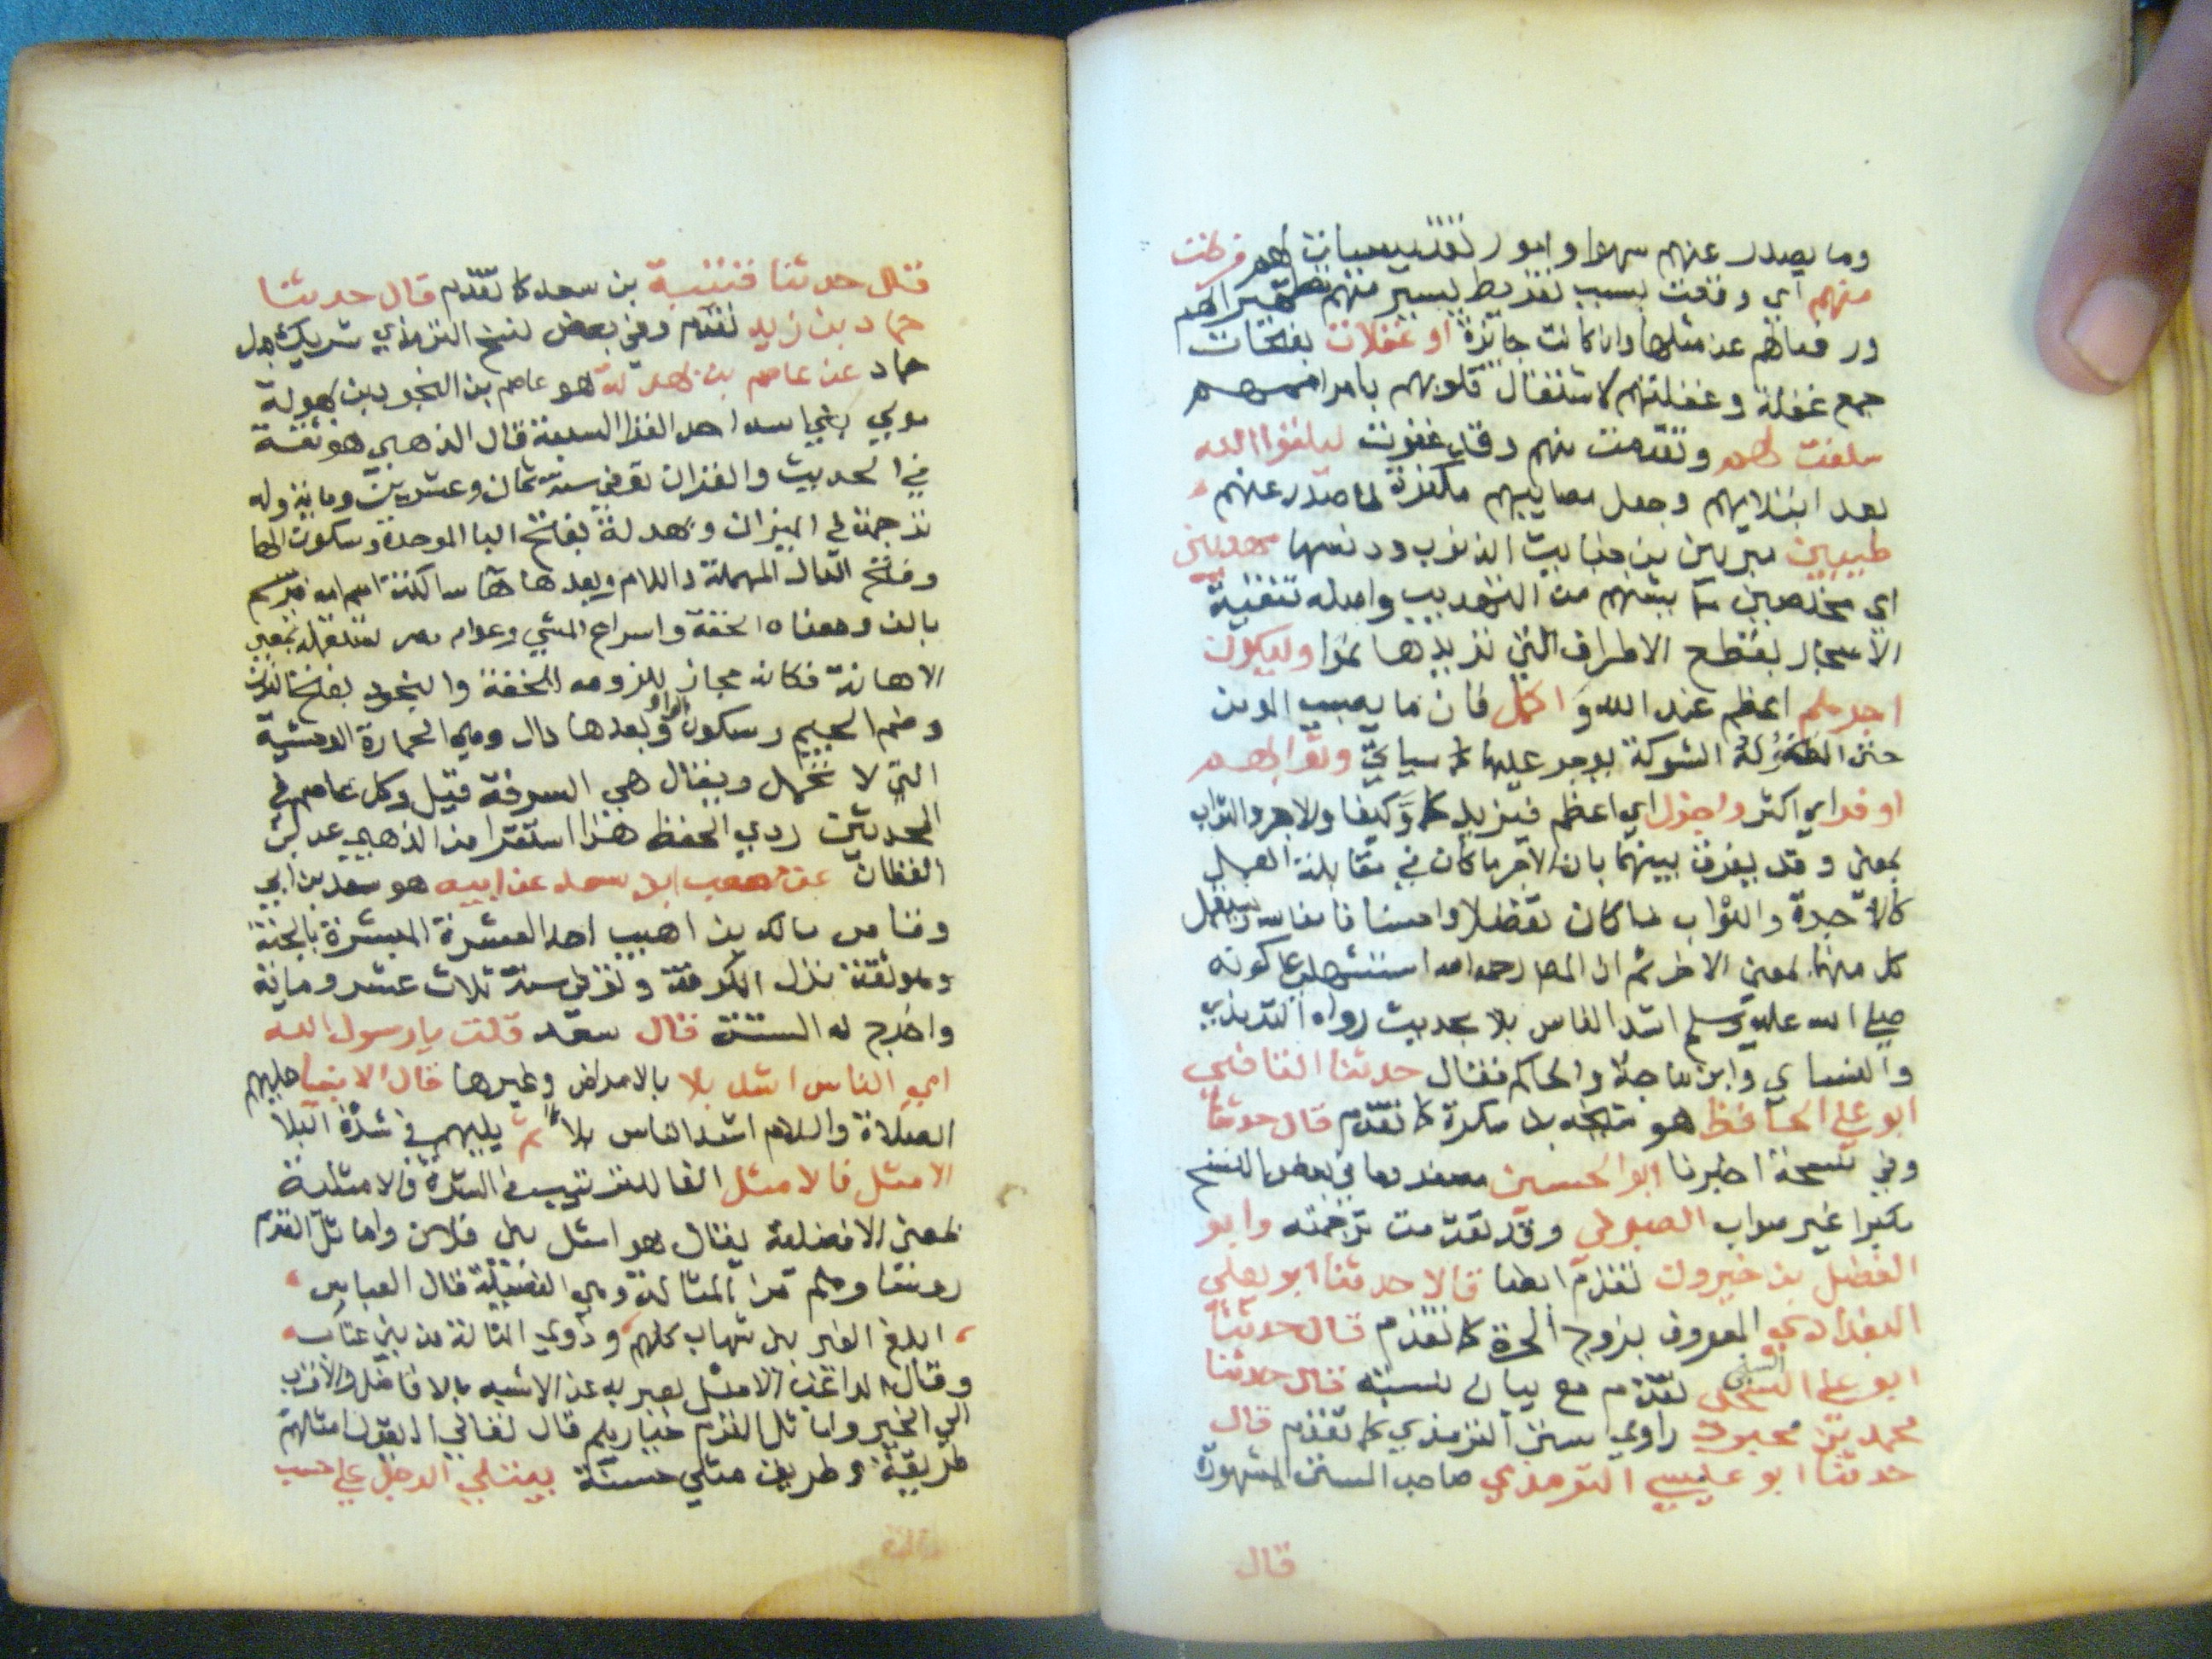 وما يصدر عنهم سهوا وامور تعد سيات لهم فرطت
منهم اي وقعت بسبب تفريط يسير منهم تطهيرا لهم
ورفعالهم عن مثلها وان كانت جايزة او غفلات بفتحات
جمع غفلة وغفلتهم لاشتغال قلوبهم بامر اممهم
سلفت لهم وتقدمت منهم وقد غفرت ليلقوا الله
بعد ابتلايهم وجعل مصايبهم مكفرة لما صدر عنهم
طيبين مبرين من جنايت الذنوب ودنسها مهذبين
اي مخلصين مما يشينهم من التهذيب واصله تنقية
الاشجار بقطع الاطراف التي تزيدها نموا وليكون
اجرهم اعظم عند الله واكمل فان ما يصيب المومن
حتى الشوكة يوجر عليها كما سياتي وثوابهم
اوفر اي اكثر واجزل اي اعظم فيزيد كما وكيفا والاجر والثواب
بمعنى وقد يفرق بينهما بان الاجر ما كان في مقابلة العمل
كالاجرة والثواب ما كان تفضلا واحسانا من الله ويستعمل
كل منهما بمعنى الاخر ثم ان المص رحمه الله استشهد على كونه
صلى الله عليه وسلم اشد الناس بلا بحديث رواه الترمذي
والنساي وابن ماجة والحاكم فقال حدثنا القاضي
ابو علي الحافظ هو بن سكرة كما تقدم قال حدثنا
وفي نسخة اخبرنا ابو الحسين مصغر وما في بعض النسخ
مكبرا غير صواب الصيرفي وقد تقدمت ترجمته وابو
الفضل بن خيرون تقدم ايضا قالا حدثنا ابو يعلى
البغدادي المعروف بزوج الحرة كما تقدم قال حدثنا
ابو علي السنجي تقدم مع بيان نسبته قال حدثنا
محمد بن محبوب راوي سنن الترمذي كما تقدم قال
حدثنا ابو عيسى الترمذي صاحب السنن المشهورة
قال
قال حدثنا قتيبة بن سعد كما تقدم قال حدثنا
حماد بن زيد تقدم وفي بعض نسخ الترمذي شريك بدل
حماد عن عاصم بن بهدلة هو عاصم بن النجود بن بهدلة
مولى بني اسد احد القرا السبعة قال الذهبي هو ثقة
في الحديث والقران توفي سنة ثمان وعشرين وماية وله
ترجمة في الميزان وبهدلة بفتح البا الموحدة وسكون الها
وفتح الدال المهملة واللام وبعدها ها ساكنة اسم امه
بالف ومعناه الخفة واسراع المشي وعوام مصر تستعمله بمعنى
الاهانة فكانه مجاز للزومه للخفة والنجود بفتح النون
وضم الجيم وسكون الواو وبعدها دال وهي الحمارة الوحشية
التي لا تحمل ويقال هي المشرفة قيل وكل عاصم في
المحدثين ردي الحفظ هذا استقرا من الذهبي عن ابن
القطان عن مصعب ابن سعد عن ابيه هو سعد بن ابي
وقاص مالك بن اهيب احد العشرة المبشرة بالجنة
وهو ثقة نزل الكوفة وتوفي سنة ثلاث عشر وماية
واخرج له الستة قال سعد قلت يا رسول الله
اي الناس اشد بلا بالامراض وغيرها قال الانبيا عليهم
الصلاة والسلام اشد الناس بلا ثم يليهم في شدة البلا
الامثل فالامثل الفا للترتيب في الشدة والامثلية
بمعنى الافضلية يقال هو امثل بني فلان واماثل القوم
روسا وهم من المثالة وهي الفضيلة قال العباس
ابلغ الغر بني شهاب كلهم وذوي المثالة من بني عتاب
وقال الراغب الامثل يعبر به عن الاشبه بالافاضل والاقرب
الى الخير واماثل القوم خيارهم قال تعالى اذ يقول امثلهم
طريقة وطريقة مثلى حسنة يبتلى الرجل على حسب